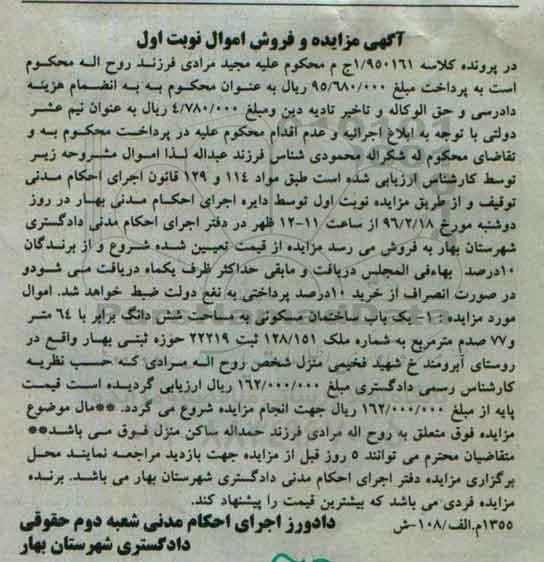 آگهی مزایده و فروش اموال نوبت اول
در پرونده کلاسه ۱/۹۵۰۱۶۱ج م محکوم علیه مجید مرادی فرزند روح اله محکوم
است به پرداخت مبلغ ۹۵/۶۸۰/۰۰۰ ریال به عنوان محکوم به به انضمام هزینه
دادرسی و حق الوکاله و تاخیر تادیه دین ومبلغ ۴/۷۸۰/۰۰۰ ریال به عنوان نیم عشر
دولتی با توجه به ابلاغ اجرائیه و عدم اقدام محکوم علیه در پرداخت محکوم به و
تقاضای محکوم له شکراله محمودی شناس فرزند عبداله لذا اموال مشروحه زیر
توسط کارشناس ارزیابی شده است طبق مواد ۱۱۴ و ۱۲۹ قانون اجرای احکام مدنی
توقیف و از طریق مزایده نوبت اول توسط دایره اجرای احکام مدنی بهار در روز
دوشنبه مورخ ۹۶/۲/۱۸ از ساعت ۱۱-۱۲ ظهر در دفتر اجرای احکام مدنی دادگستری
شهرستان بهار به فروش می رسد مزایده از قیمت تعیین شده شروع و از برندگان
۱۰درصد بهاءفی المجلس دریافت و مابقی حداکثر ظرف یکماه دریافت می شودو
در صورت انصراف از خرید ۱۰درصد پرداختی به نفع دولت ضبط خواهد شد. اموال
مورد مزایده : ۱- یک باب ساختمان مسکونی به مساحت شش دانگ برابر با ۶۴ متر
و۷۷ صدم مترمربع به شماره ملک ۱۲۸/۱۵۱ ثبت ۲۲۲۱۹ حوزه ثبتی بهار واقع در
روستای آبرومند خ شهید فخیمی منزل شخص روح اله مرادی که حسب نظریه
کارشناس رسمی دادگستری مبلغ ۱۶۲/۰۰۰/۰۰۰ ریال ارزیابی گردیده است قیمت
پایه از مبلغ ۱۶۲/۰۰۰/۰۰۰ ریال جهت انجام مزایده شروع می گردد. **مال موضوع
مزایده فوق متعلق به روح اله مرادی فرزند حمداله ساکن منزل فوق می باشد**
متقاضیان محترم می توانند ۵ روز قبل از مزایده جهت بازدید مراجعه نمایند محل
برگزاری مزایده دفتر اجرای احکام مدنی دادگستری شهرستان بهار می باشد. برنده
مزایده فردی می باشد که بیشترین قیمت را پیشنهاد کند.
۱۳۵۵م.الف/۱۰۸-ش
دادورز اجرای احکام مدنی شعبه دوم حقوقی
دادگستری شهرستان بهار